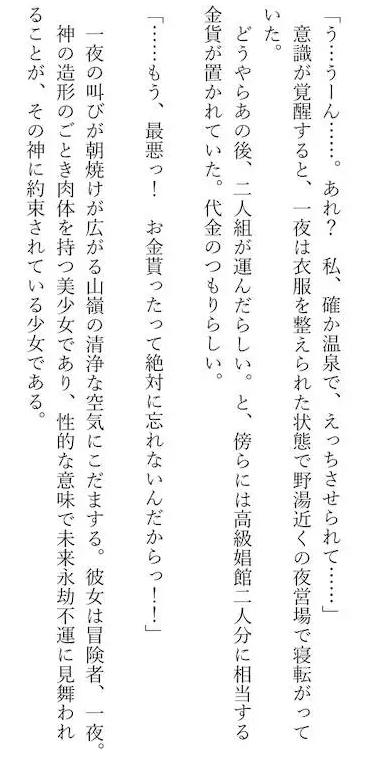 「う…うーん……。あれ？　私、確か温泉で、えっちさせられて……」
　意識が覚醒すると、一夜は衣服を整えられた状態で野湯近くの夜営場で寝転がって
いた。
　どうやらあの後、二人組が運んだらしい。と、傍らには高級娼館二人分に相当する
金貨が置かれていた。代金のつもりらしい。
「……もう、最悪っ！　お金貰ったって絶対に忘れないんだからっ！！」
　一夜の叫びが朝焼けが広がる山嶺の清浄な空気にこだまする。彼女は冒険者、一夜。
　神の造形のごとき肉体を持つ美少女であり、性的な意味で未来永劫不運に見舞われ
ることが、その神に約束されている少女である。